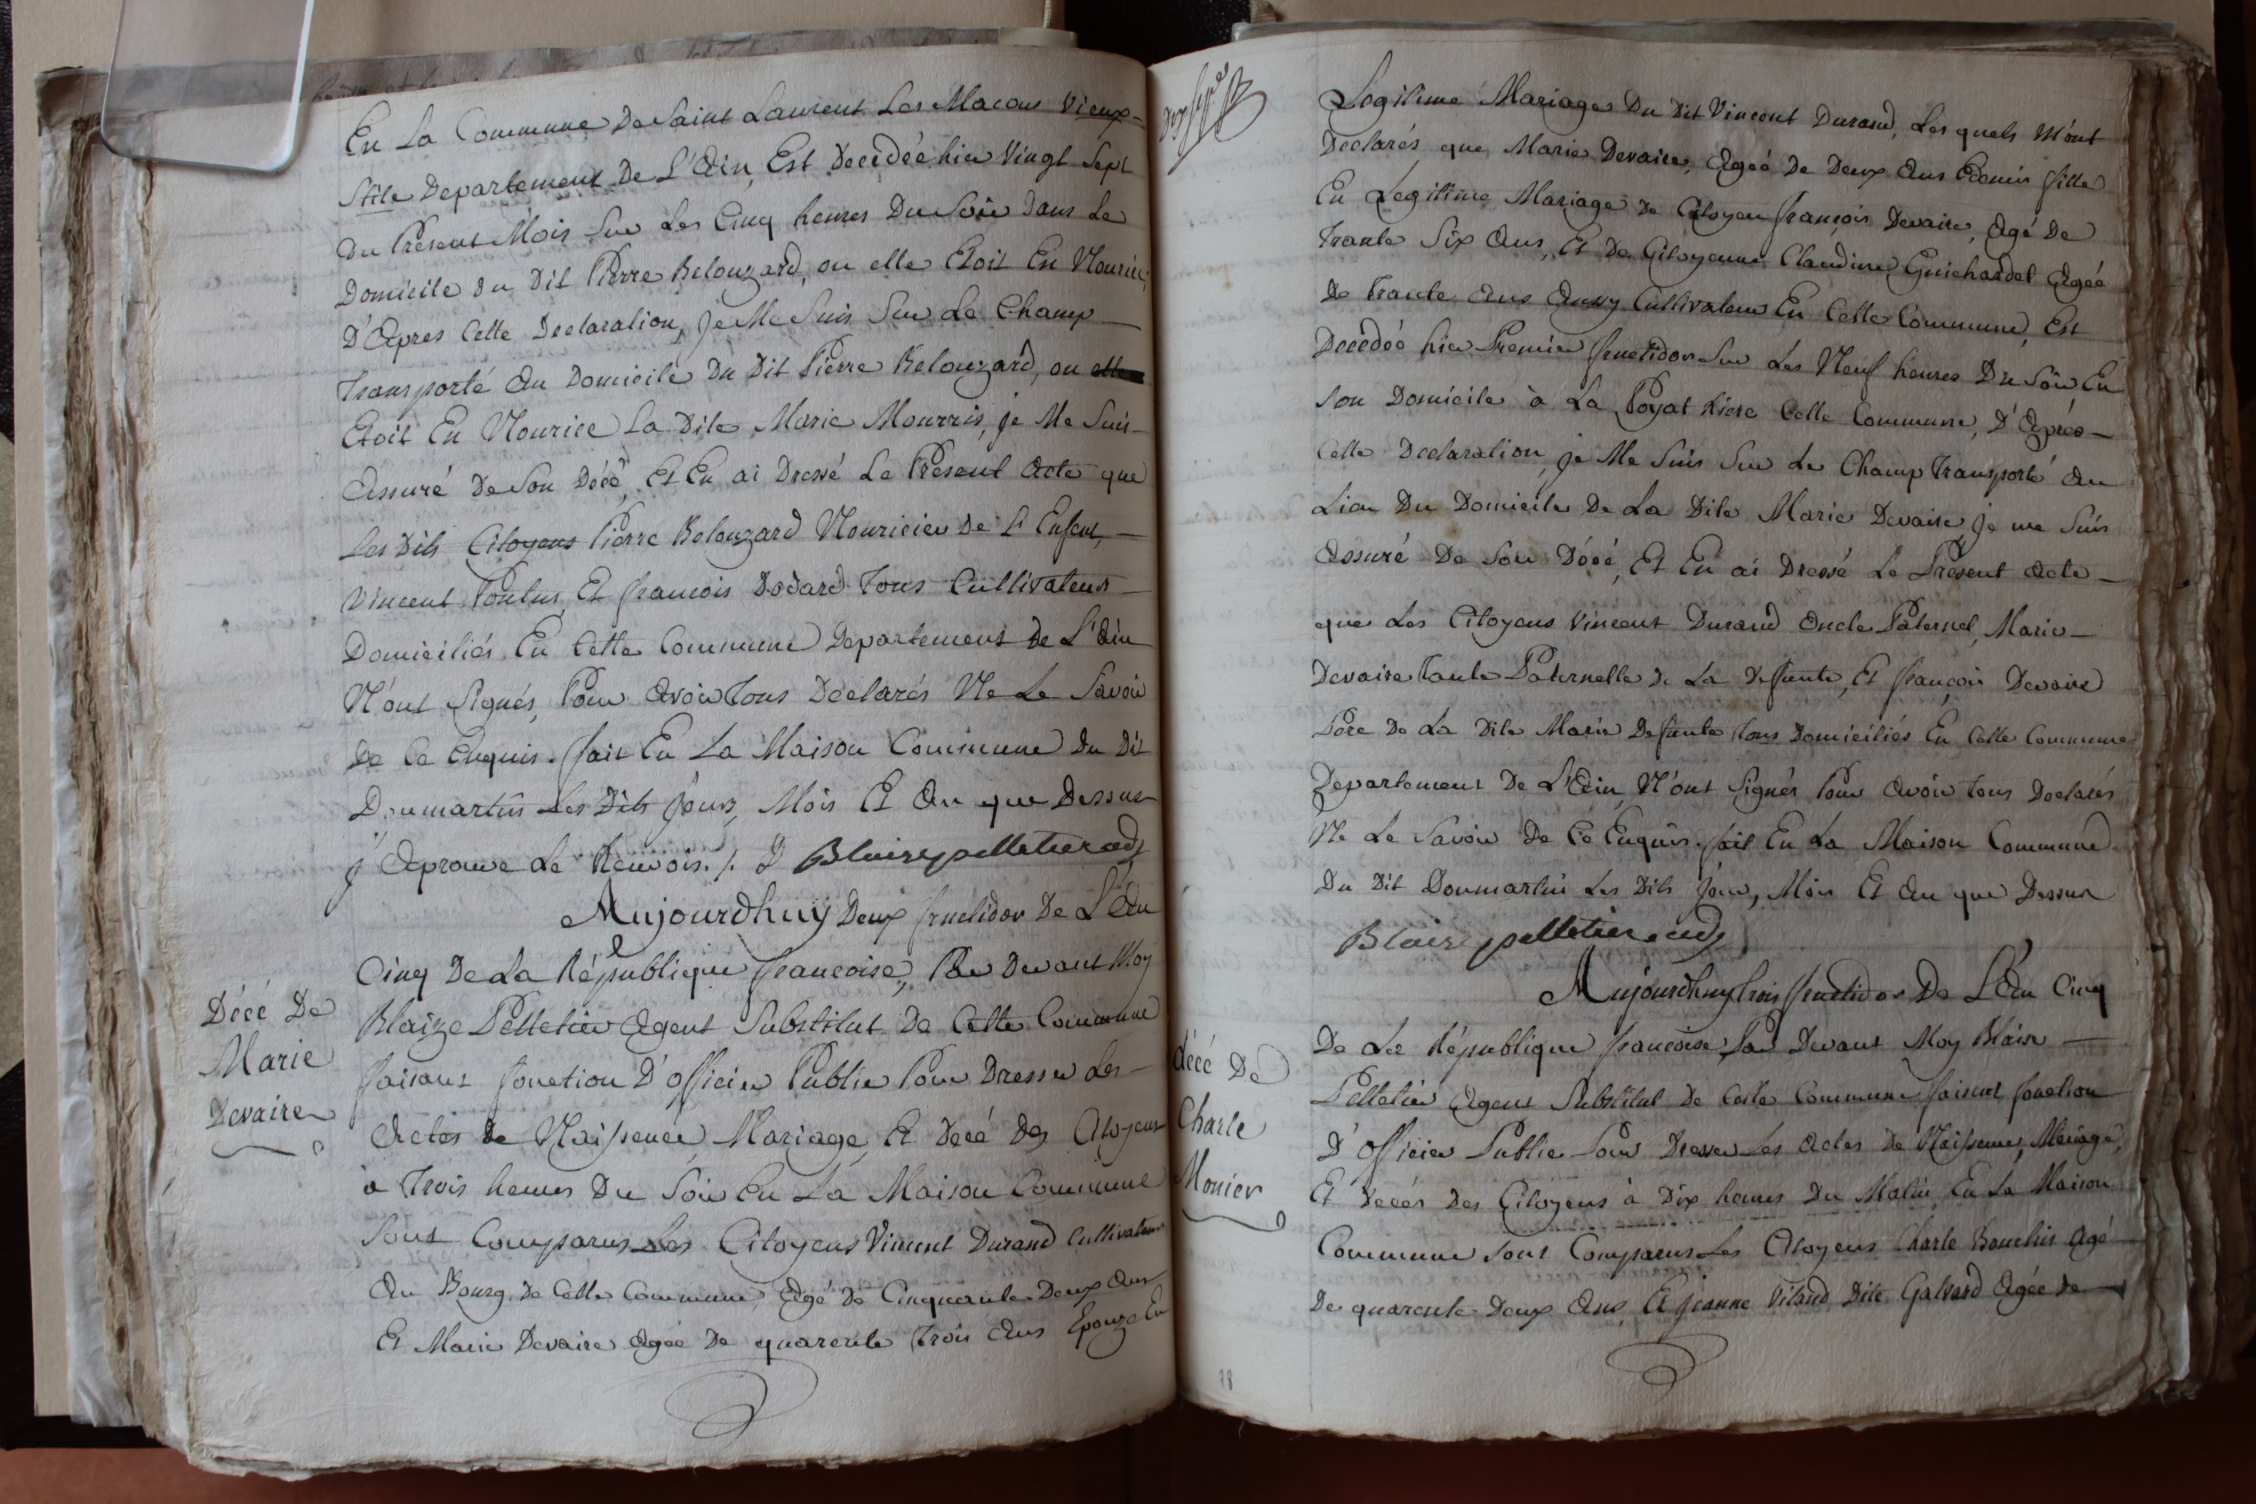 En La Commune De Saint Laurent Les Macons Vieux-
Stile Departement De L'Ain, Est Decedée hier Vingt Sept
Du Présent Mois Sur Les Cinq heures Du Soir Dans Le
Domicile du Dit Pierre Belouzard, ou elle Etoit En Nourice,
D'Apres Cette Declaration, Je Me Suis Sur Le Champ
Transporté Au Domicile Du Dit Pierre Belouzard, ou
Etoit En Nourice La Dite Marie Mourris, je Me Suis
Assuré De Son Décé, Et En ai Dressé Le Présent Acte que
Les Dits Citoyens Pierre Belouzard Nouricier De L'Enfent,
Vincent Poulus, Et francois Dodard Tous Cultivateur
Domiciliés En Cette Commune Departement De L'Ain
N'ont Signés, Pour Avoir Tous Déclarés Ne Le Savoir
De Ce Enquis. fait En La Maison Commune Du Dit
Donmartin Les Dits Jour, Mois Et An que Dessus
J'Aprouve Le Renvois ./. Blaize pelletier
Aujourdhuy Deux fructidor De L'An
Cinq De La République francoise, Par Devant Moy
Blaize Pelletier Agent Substitut De Cette Commune
faisant fonction D'officier Public Pour Dresser Les
Actes De Naissence, Mariage, Et Décé Des Citoyens
à Trois heures Du Soir En La Maison Commune
Sont Comparus Les Citoyens Vincent Durand Cultivateur
Au Bourg De Cette Commune, Agé De Cinquante Deux Ans
Et Marie Devaire Agée De quarente Trois Ans Epouze En
Décé De
Marie
Devaire
Legitime Mariage Du Dit Vincent Durand, Les quels M'ont
Declarés que Marie Devaire, Ageé De Deux Ans Edemis fille
En Legittime Mariage De Citoyen françois Devaire, Agé De
Trante Six Ans, Et De Citoyenne Claudine Guichardet Agée
De Trante Ans Aussy Cultivateur En Cette Commune, Est
Décédée hier Premier fructidor Sur Les Neuf heures Du Soir En
Son Domicile à La Poyat Riere Cette Commune, D'Aprés
Cette Declaration, Je Me Suis Sur Le Champ Transporté Au
Lieu Du Domicile De La Dite Marie Devaire, Je me Suis
Assuré De Son Décé, Et En ai Dressé Le Présent Acte
que Les Citoyens Vincent Durand Oncle Paternel, Marie
Devaire Tante Paternelle De La Defunte, Et françois Devaire
Pére De La Dite Marie Defunte Tous Domiciliés En Cette Commune
Departement De L'Ain, N'ont Signés Pour Avoir Tous Declarés
Ne Le Savoir De Cé Enquis. fait En La Maison Commune
Du Dit Donmartin Les Dits Jour, Mois Et An que Dessus
Blaize pelletier
Aujourdhuy Trois fructidor De L'An Cinq
De La République francoise, Par Devant Moy Blaise
Pelletier Agent Substitut De Cette Commune faisant fonction
D'Officier Public Pour Dresser Les Actes De Naissence, Mariage,
Et Décés Des Citoyens à Dix heures Du Matin En La Maison
Commune Sont Comparus Les Citoyens Charle Bouchis Agé
De quarente Deux Ans, Et Jeanne Vitaud Dite Galvard Agée De
Décé De
Charle
Monier
78